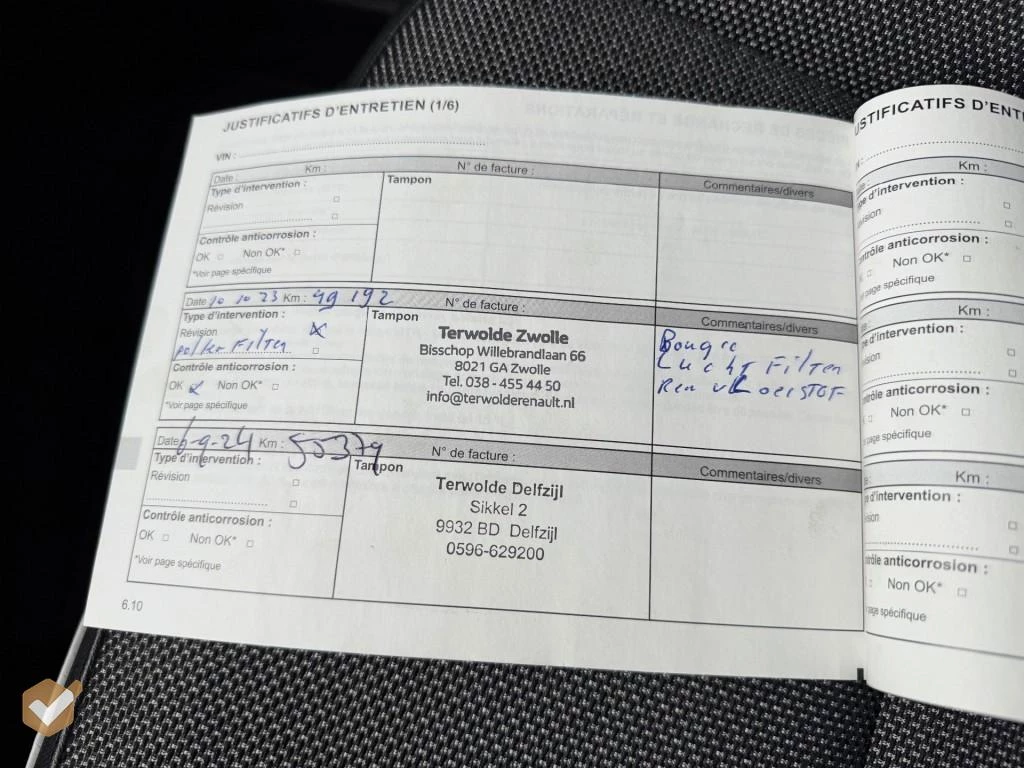 JUSTIFICATIFS D'ENTRETIEN (1/6)
VIN :
Date : Km : N° de facture :
Type d'intervention : Tampon Commentaires/divers
Révision
Contrôle anticorrosion :
OK Non OK*
*Voir page spécifique
Date 10 10 23 Km : 49 192 N° de facture :
Type d'intervention : Tampon Commentaires/divers
Révision
pollen Filter
Contrôle anticorrosion :
OK Non OK*
*Voir page spécifique
Terwolde Zwolle
Bisschop Willebrandlaan 66
8021 GA Zwolle
Tel. 038 - 455 44 50
info@terwolderenault.nl
Bougie
Lucht Filter
Rem vloeistof
Date 6-9-24 Km : 50379 N° de facture :
Type d'intervention : Tampon Commentaires/divers
Révision
Contrôle anticorrosion :
OK Non OK*
*Voir page spécifique
Terwolde Delfzijl
Sikkel 2
9932 BD Delfzijl
0596-629200
6.10
USTIFICATIFS D'ENT
Km :
pe d'intervention :
vision
ntrôle anticorrosion :
Non OK*
page spécifique
Km :
pe d'intervention :
vision
ntrôle anticorrosion :
Non OK*
page spécifique
Km :
e d'intervention :
ision
trôle anticorrosion :
Non OK*
page spécifique